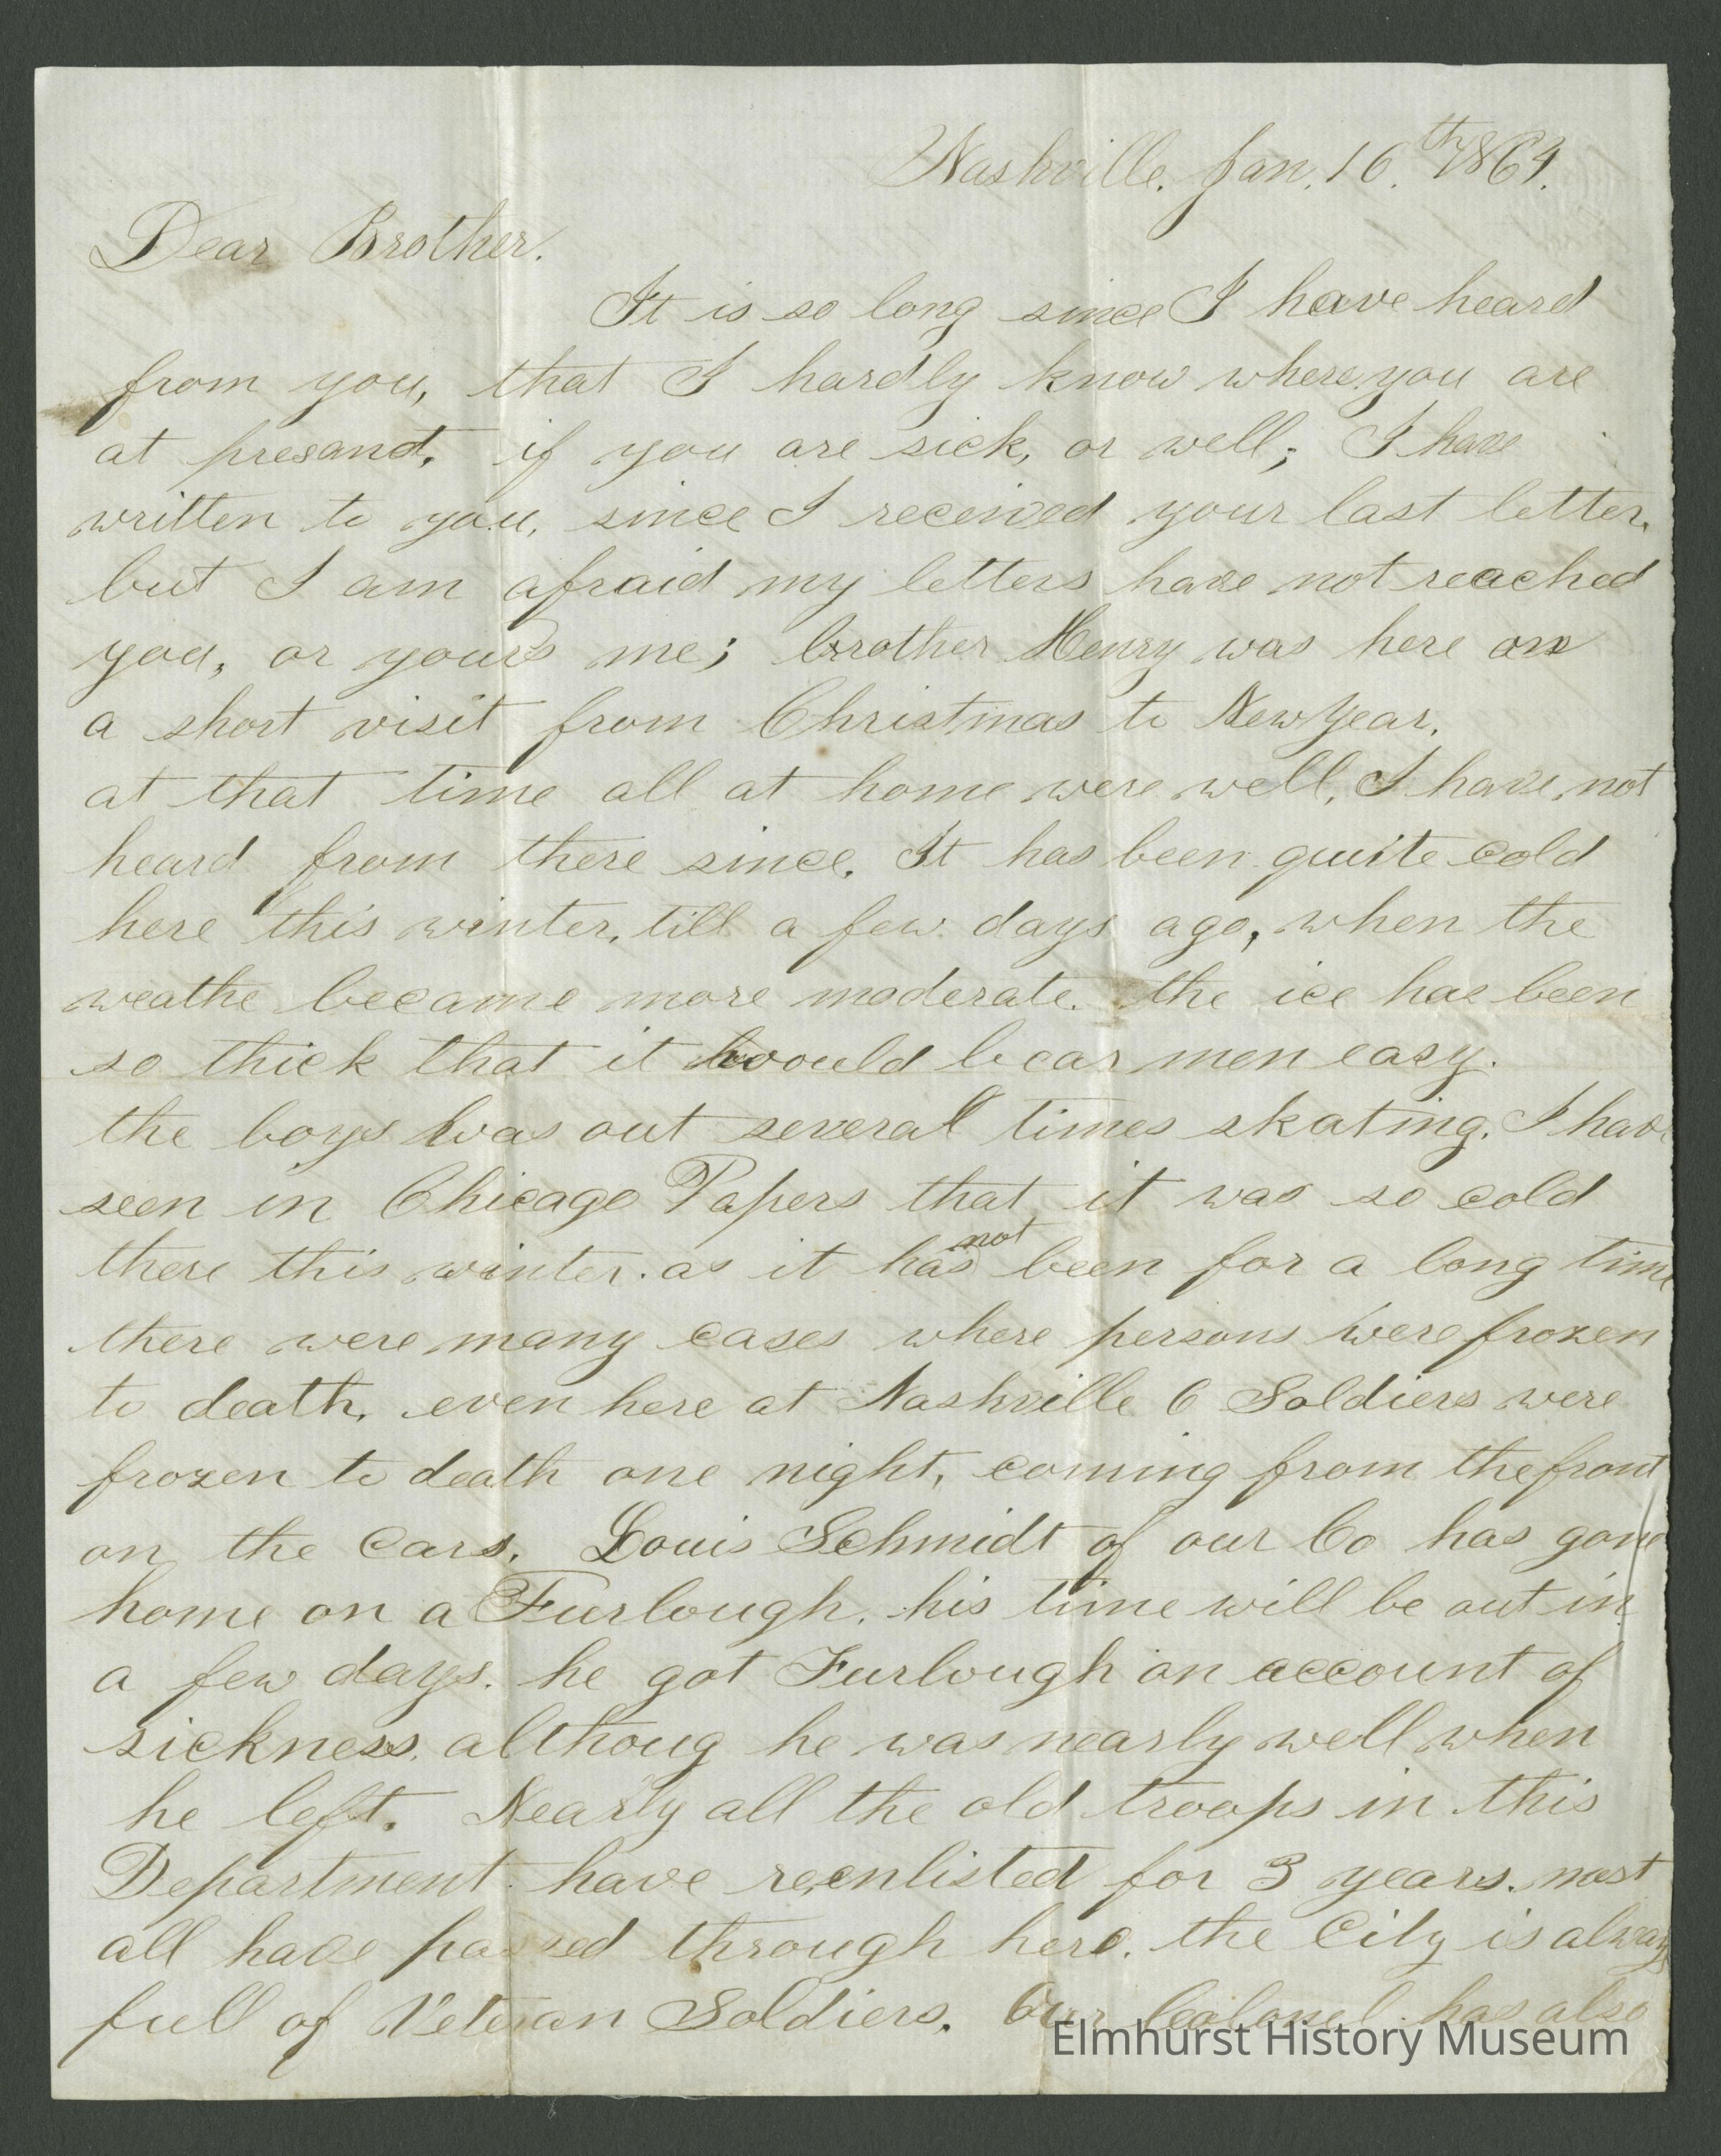 Nashville. Jan. 16.th 1864.
Dear Brother.
It is so long since I have heard
from you, that I hardly know where you are
at presant, if you are sick, or well; I have
written to you, since I received your last letter,
but I am afraid my letters have not reached
you, or yours me; brother Henry was here on
a short visit from Christmas to NewYear.
at that time all at home were well. I have not
heard from there since. It has been quite cold
here this winter, till a few days ago, when the
weathe became more moderate. the ice has been
so thick that it would bear men easy.
the boys was out several times skating. I have
seen in Chicago Papers that it was so cold
there this winter. as it has not been for a long time
there were many cases where persons were frozen
to death. even here at Nashville 6 Soldiers were
frozen to death one night, coming from the front
on the Cars. Louis Schmidt of our Co has gone
home on a Furlough. his time will be out in
a few days. he got Furlough on account of
sickness. althoug he was nearly well when
he left. Nearly all the old troops in this
Department have reenlisted for 3 years. most
all have passed through here. the City is always
full of Veteran Soldiers. Our Colonel has also
Elmhurst History Museum